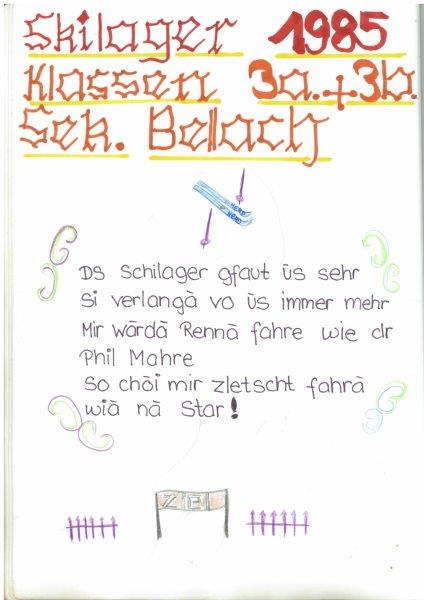 Skilager 1985
Klassen 3a.+3b.
Sek. Bellach
Ds Schilager gfaut üs sehr
Si verlangä vo üs immer mehr
Mir wärdä Rennä fahre wie dr
Phil Mahre
So chöi mir zletscht fahrä
wiä nä Star!
ZEL